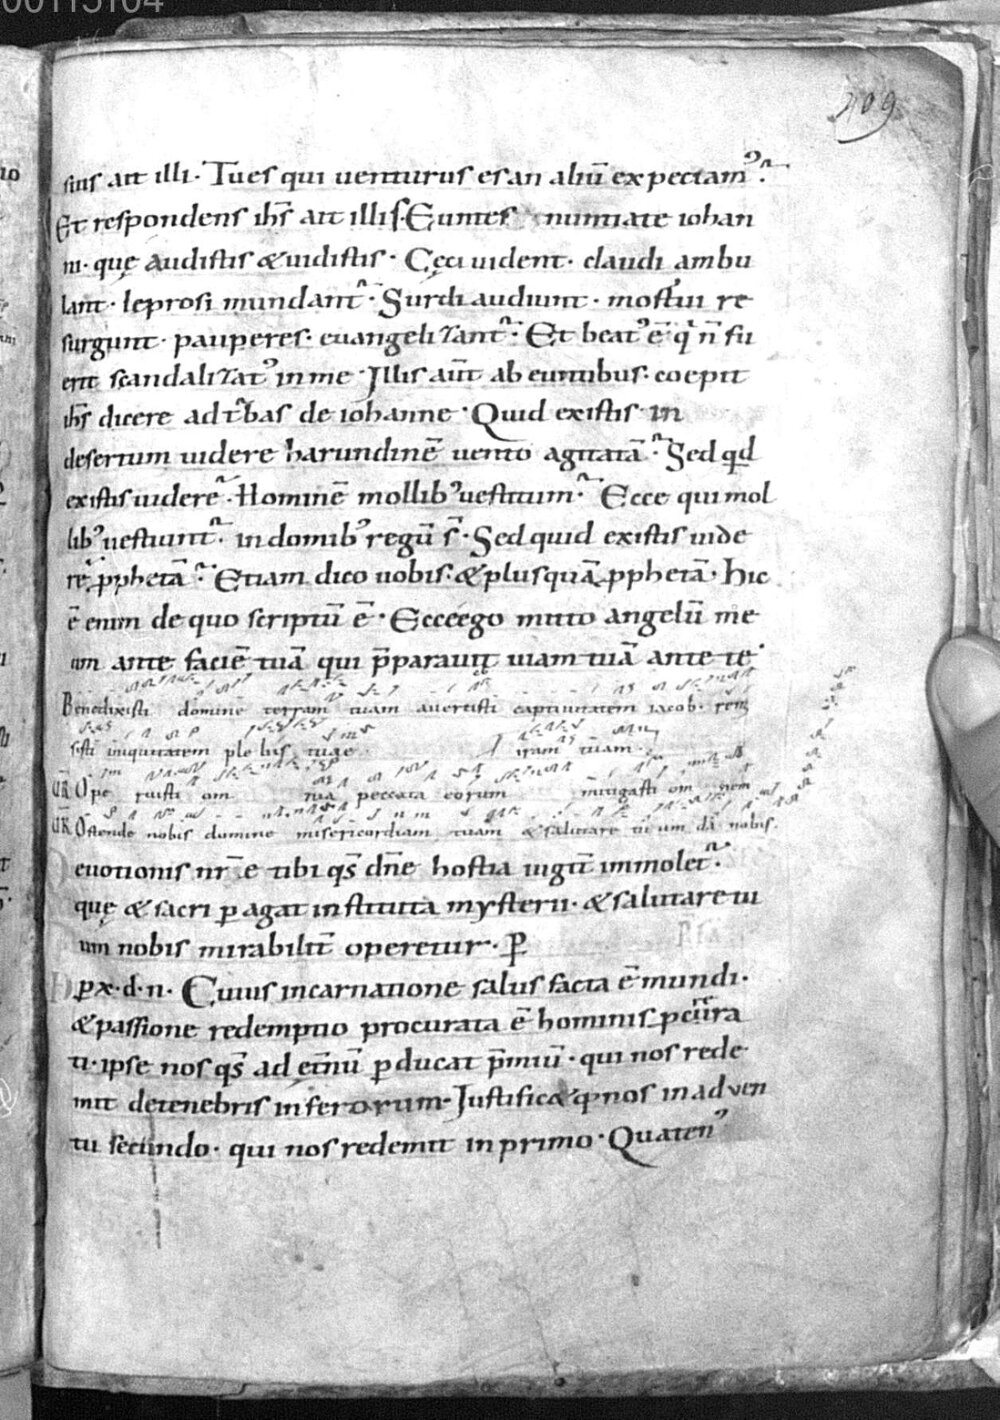 00115104
209
sius ait illi· Tu es qui uenturus es an aliū expectam᷒?
Et respondens ihs̄ ait illis· Euntes nuntiate iohan
ni· quę audistis & uidistis· Cęci uident· claudi ambu
lant· leprosi mundant᷑· Surdi audiunt· mortui re
surgunt· pauperes· euangelizant᷑· Et beat᷒ ē qi n̄ fu
erit scandalizat᷒ in me· Illis aūt abeuntibus· coepit
ihs̄ dicere ad t᷑bas de iohanne· Quid existis in
desertum uidere harundinē uento agitatā? Sed qd
existis uidere? Hominē mollib᷒ uestitum? Ecce qui mol
lib᷒ uestiunt᷑· in domib᷒ regū s̄· Sed quid existis uide
re? ꝓphetā? Etiam dico uobis· & plusquā ꝓphetā· Hic
ē enim de quo scriptū ē· Ecce ego mitto angelū me
um ante faciē tuā qui p̄parauit uiam tuā ante te·
Benedixisti domine terram tuam auertisti captiuitatem iacob· remi
sisti iniquitatem ple bis tuae iram tuam·
Ope ruisti om nia peccata eorum mitigasti om nem
Ostende nobis domine misericordiam tuam & salutare tu um da nobis·
euotionis nr̄ e tibi qs̄ dn̄e hostia iugit̄ immolet᷑·
quę & sacri peragat instituta mysterii· & salutare tu
um nobis mirabilit̄ operetur· P̄
p x̄· d· n· Cuius incarnatione salus facta ē mundi·
& passione redemptio procurata ē hominis ꝓcrea
ti· ipse nos qs̄ ad et̄nū ꝑducat p̄miū· qui nos rede
mit de tenebris inferorum· Iustificetq· nos in aduen
tu secundo· qui nos redemit in primo· Quaten᷒